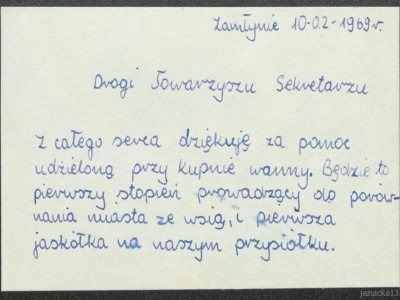 Zamłynie 10-02-1969r.
Drogi Towarzyszu Sekretarzu
Z całego serca dziękuję za pomoc
udzieloną przy kupnie wanny. Będzie to
pierwszy stopień prowadzący do porów-
nania miasta ze wsią, i pierwsza
jaskółka na naszym przysiółku.
jezuicka13